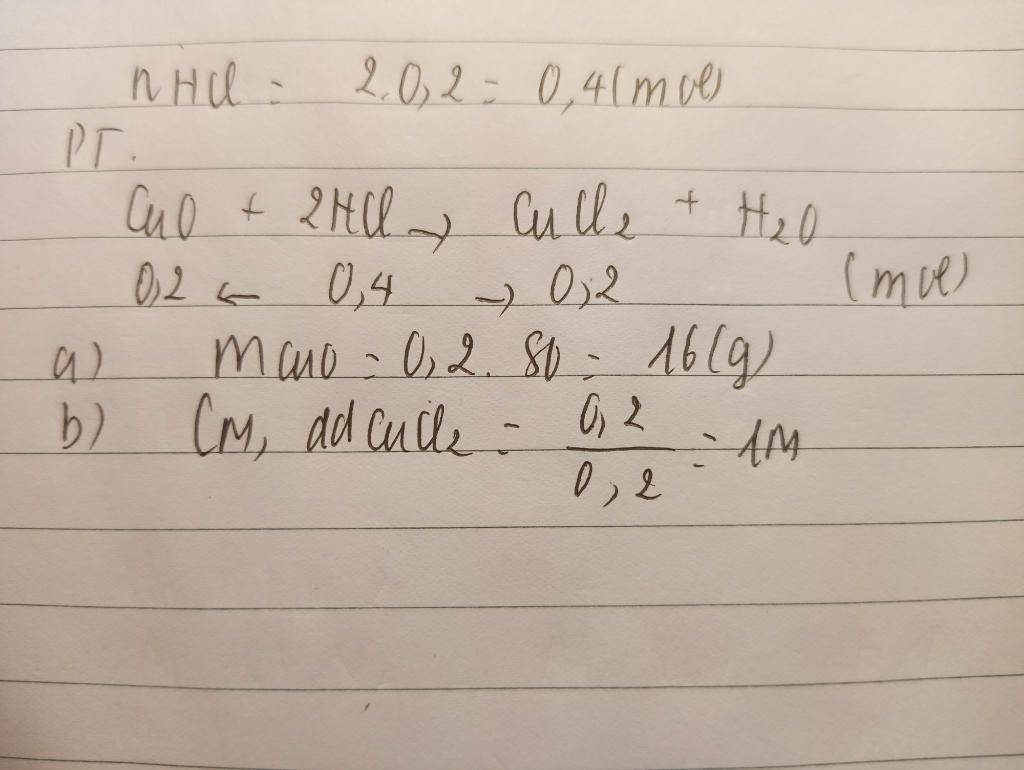 nHCl = 2.0,2 = 0,4(mol)
PT.
CuO + 2HCl → CuCl2 + H2O
0,2 ← 0,4 → 0,2 (mol)
a) mCuO = 0,2. 80 = 16(g)
b) CM, dd CuCl2 = 0,2 / 0,2 = 1M